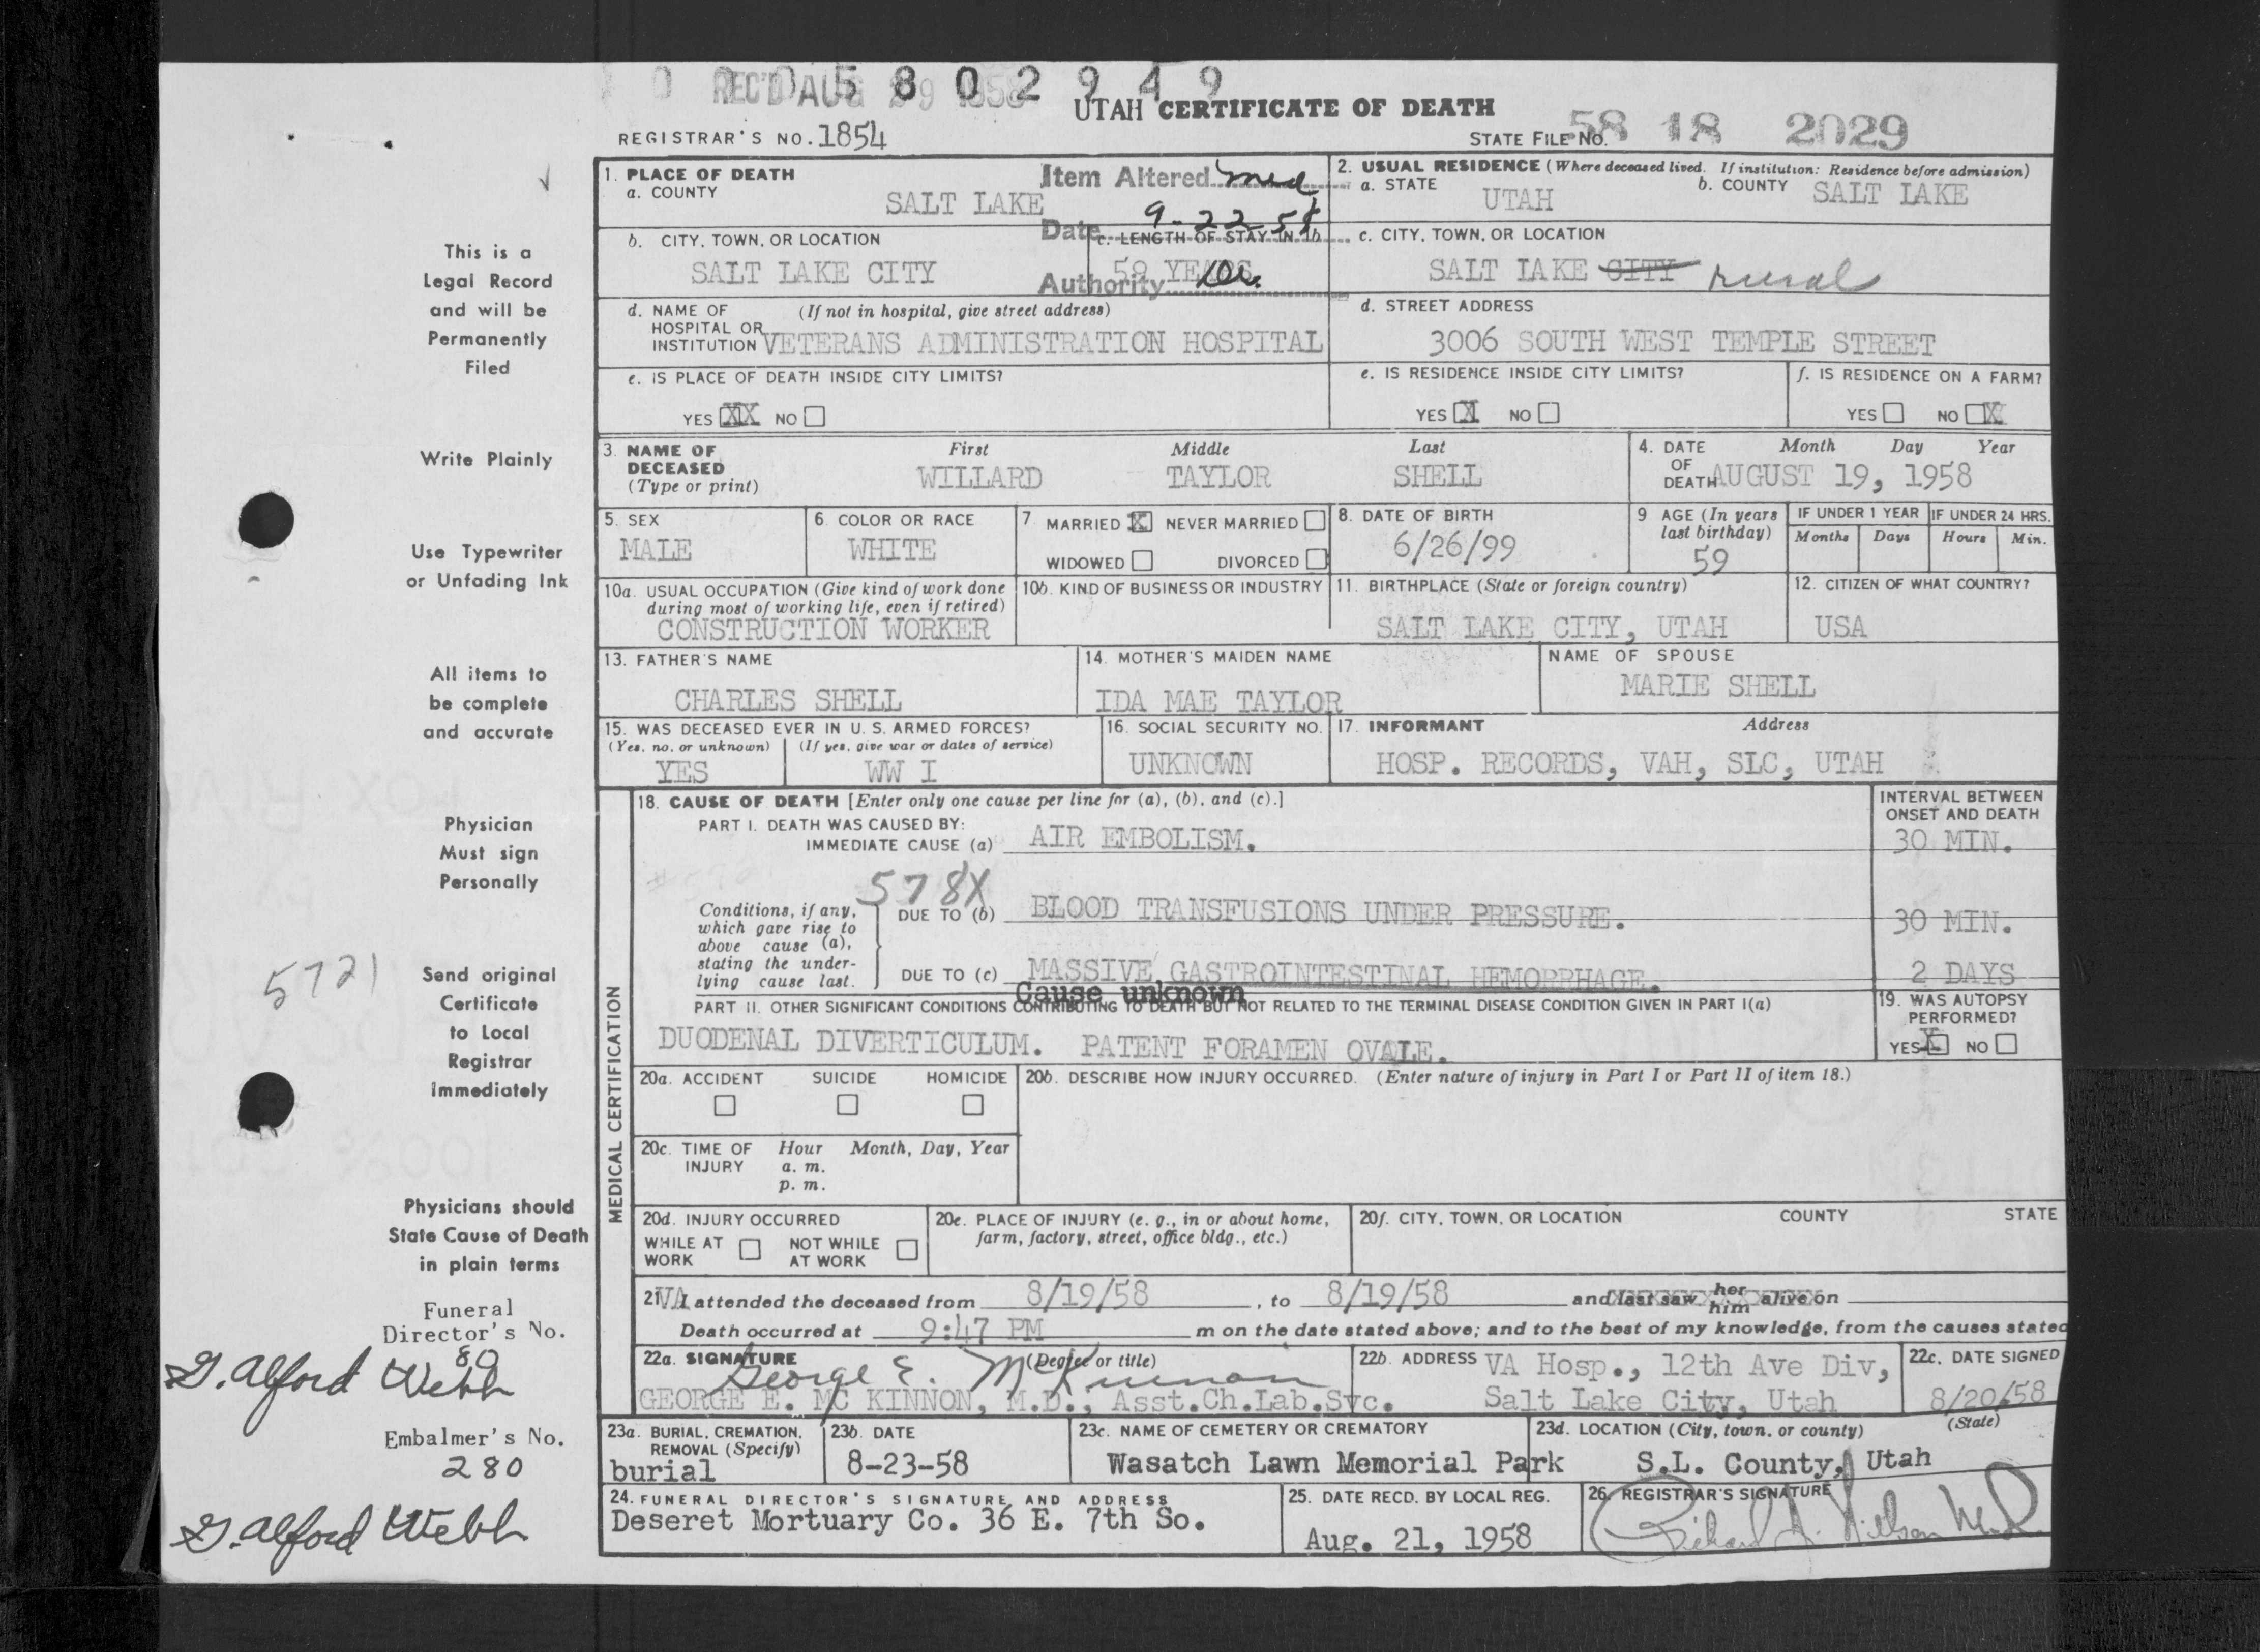 0 0 0 5 8 0 2 9 4 9
REC'D AUG 29 1958
UTAH CERTIFICATE OF DEATH
REGISTRAR'S NO. 1854
STATE FILE NO. 58 18 2029
1. PLACE OF DEATH
a. COUNTY
SALT LAKE
Item Altered
Date 9-22-58
Authority
2. USUAL RESIDENCE (Where deceased lived. If institution: Residence before admission)
a. STATE
UTAH
b. COUNTY
SALT LAKE
b. CITY, TOWN, OR LOCATION
SALT LAKE CITY
c. LENGTH OF STAY IN 1b
59 YEARS
c. CITY, TOWN, OR LOCATION
SALT LAKE CITY rural
d. NAME OF (If not in hospital, give street address)
HOSPITAL OR
INSTITUTION VETERANS ADMINISTRATION HOSPITAL
d. STREET ADDRESS
3006 SOUTH WEST TEMPLE STREET
e. IS PLACE OF DEATH INSIDE CITY LIMITS?
YES XX NO
e. IS RESIDENCE INSIDE CITY LIMITS?
YES X NO
f. IS RESIDENCE ON A FARM?
YES NO X
3. NAME OF DECEASED (Type or print)
First Middle Last
WILLARD TAYLOR SHELL
4. DATE OF DEATH
Month Day Year
AUGUST 19, 1958
5. SEX
MALE
6. COLOR OR RACE
WHITE
7. MARRIED X NEVER MARRIED
WIDOWED DIVORCED
8. DATE OF BIRTH
6/26/99
9 AGE (In years last birthday)
59
IF UNDER 1 YEAR
Months Days
IF UNDER 24 HRS.
Hours Min.
10a. USUAL OCCUPATION (Give kind of work done
during most of working life, even if retired)
CONSTRUCTION WORKER
10b. KIND OF BUSINESS OR INDUSTRY
11. BIRTHPLACE (State or foreign country)
SALT LAKE CITY, UTAH
12. CITIZEN OF WHAT COUNTRY?
USA
13. FATHER'S NAME
CHARLES SHELL
14. MOTHER'S MAIDEN NAME
IDA MAE TAYLOR
NAME OF SPOUSE
MARIE SHELL
15. WAS DECEASED EVER IN U. S. ARMED FORCES?
(Yes, no, or unknown) (If yes, give war or dates of service)
YES WW I
16. SOCIAL SECURITY NO.
UNKNOWN
17. INFORMANT Address
HOSP. RECORDS, VAH, SLC, UTAH
MEDICAL CERTIFICATION
18. CAUSE OF DEATH [Enter only one cause per line for (a), (b), and (c).]
INTERVAL BETWEEN
ONSET AND DEATH
PART I. DEATH WAS CAUSED BY:
IMMEDIATE CAUSE (a) AIR EMBOLISM. 30 MIN.
578X
Conditions, if any,
which gave rise to
above cause (a),
stating the under-
lying cause last.
DUE TO (b) BLOOD TRANSFUSIONS UNDER PRESSURE. 30 MIN.
DUE TO (c) MASSIVE GASTROINTESTINAL HEMORRHAGE. 2 DAYS
Cause unknown
PART II. OTHER SIGNIFICANT CONDITIONS CONTRIBUTING TO DEATH BUT NOT RELATED TO THE TERMINAL DISEASE CONDITION GIVEN IN PART I(a)
DUODENAL DIVERTICULUM. PATENT FORAMEN OVALE.
19. WAS AUTOPSY
PERFORMED?
YES X NO
20a. ACCIDENT SUICIDE HOMICIDE
20b. DESCRIBE HOW INJURY OCCURRED. (Enter nature of injury in Part I or Part II of item 18.)
20c. TIME OF INJURY
Hour Month, Day, Year
a. m.
p. m.
20d. INJURY OCCURRED
WHILE AT WORK
NOT WHILE AT WORK
20e. PLACE OF INJURY (e. g., in or about home,
farm, factory, street, office bldg., etc.)
20f. CITY, TOWN, OR LOCATION COUNTY STATE
21. VA I attended the deceased from 8/19/58, to 8/19/58 and last saw her him alive on
Death occurred at 9:47 PM m on the date stated above; and to the best of my knowledge, from the causes stated
22a. SIGNATURE (Degree or title)
George E. McKinnon
GEORGE E. MC KINNON, M.D., Asst.Ch.Lab.Svc.
22b. ADDRESS VA Hosp., 12th Ave Div,
Salt Lake City, Utah
22c. DATE SIGNED
8/20/58
23a. BURIAL, CREMATION,
REMOVAL (Specify)
burial
23b. DATE
8-23-58
23c. NAME OF CEMETERY OR CREMATORY
Wasatch Lawn Memorial Park
23d. LOCATION (City, town, or county) (State)
S.L. County, Utah
24. FUNERAL DIRECTOR'S SIGNATURE AND ADDRESS
Deseret Mortuary Co. 36 E. 7th So.
25. DATE RECD. BY LOCAL REG.
Aug. 21, 1958
26. REGISTRAR'S SIGNATURE
Richard A. Nielsen M.D.
This is a
Legal Record
and will be
Permanently
Filed
Write Plainly
Use Typewriter
or Unfading Ink
All items to
be complete
and accurate
Physician
Must sign
Personally
5721
Send original
Certificate
to Local
Registrar
immediately
Physicians should
State Cause of Death
in plain terms
Funeral
Director's No.
80
G. Alford Webb
Embalmer's No.
280
G. Alford Webb